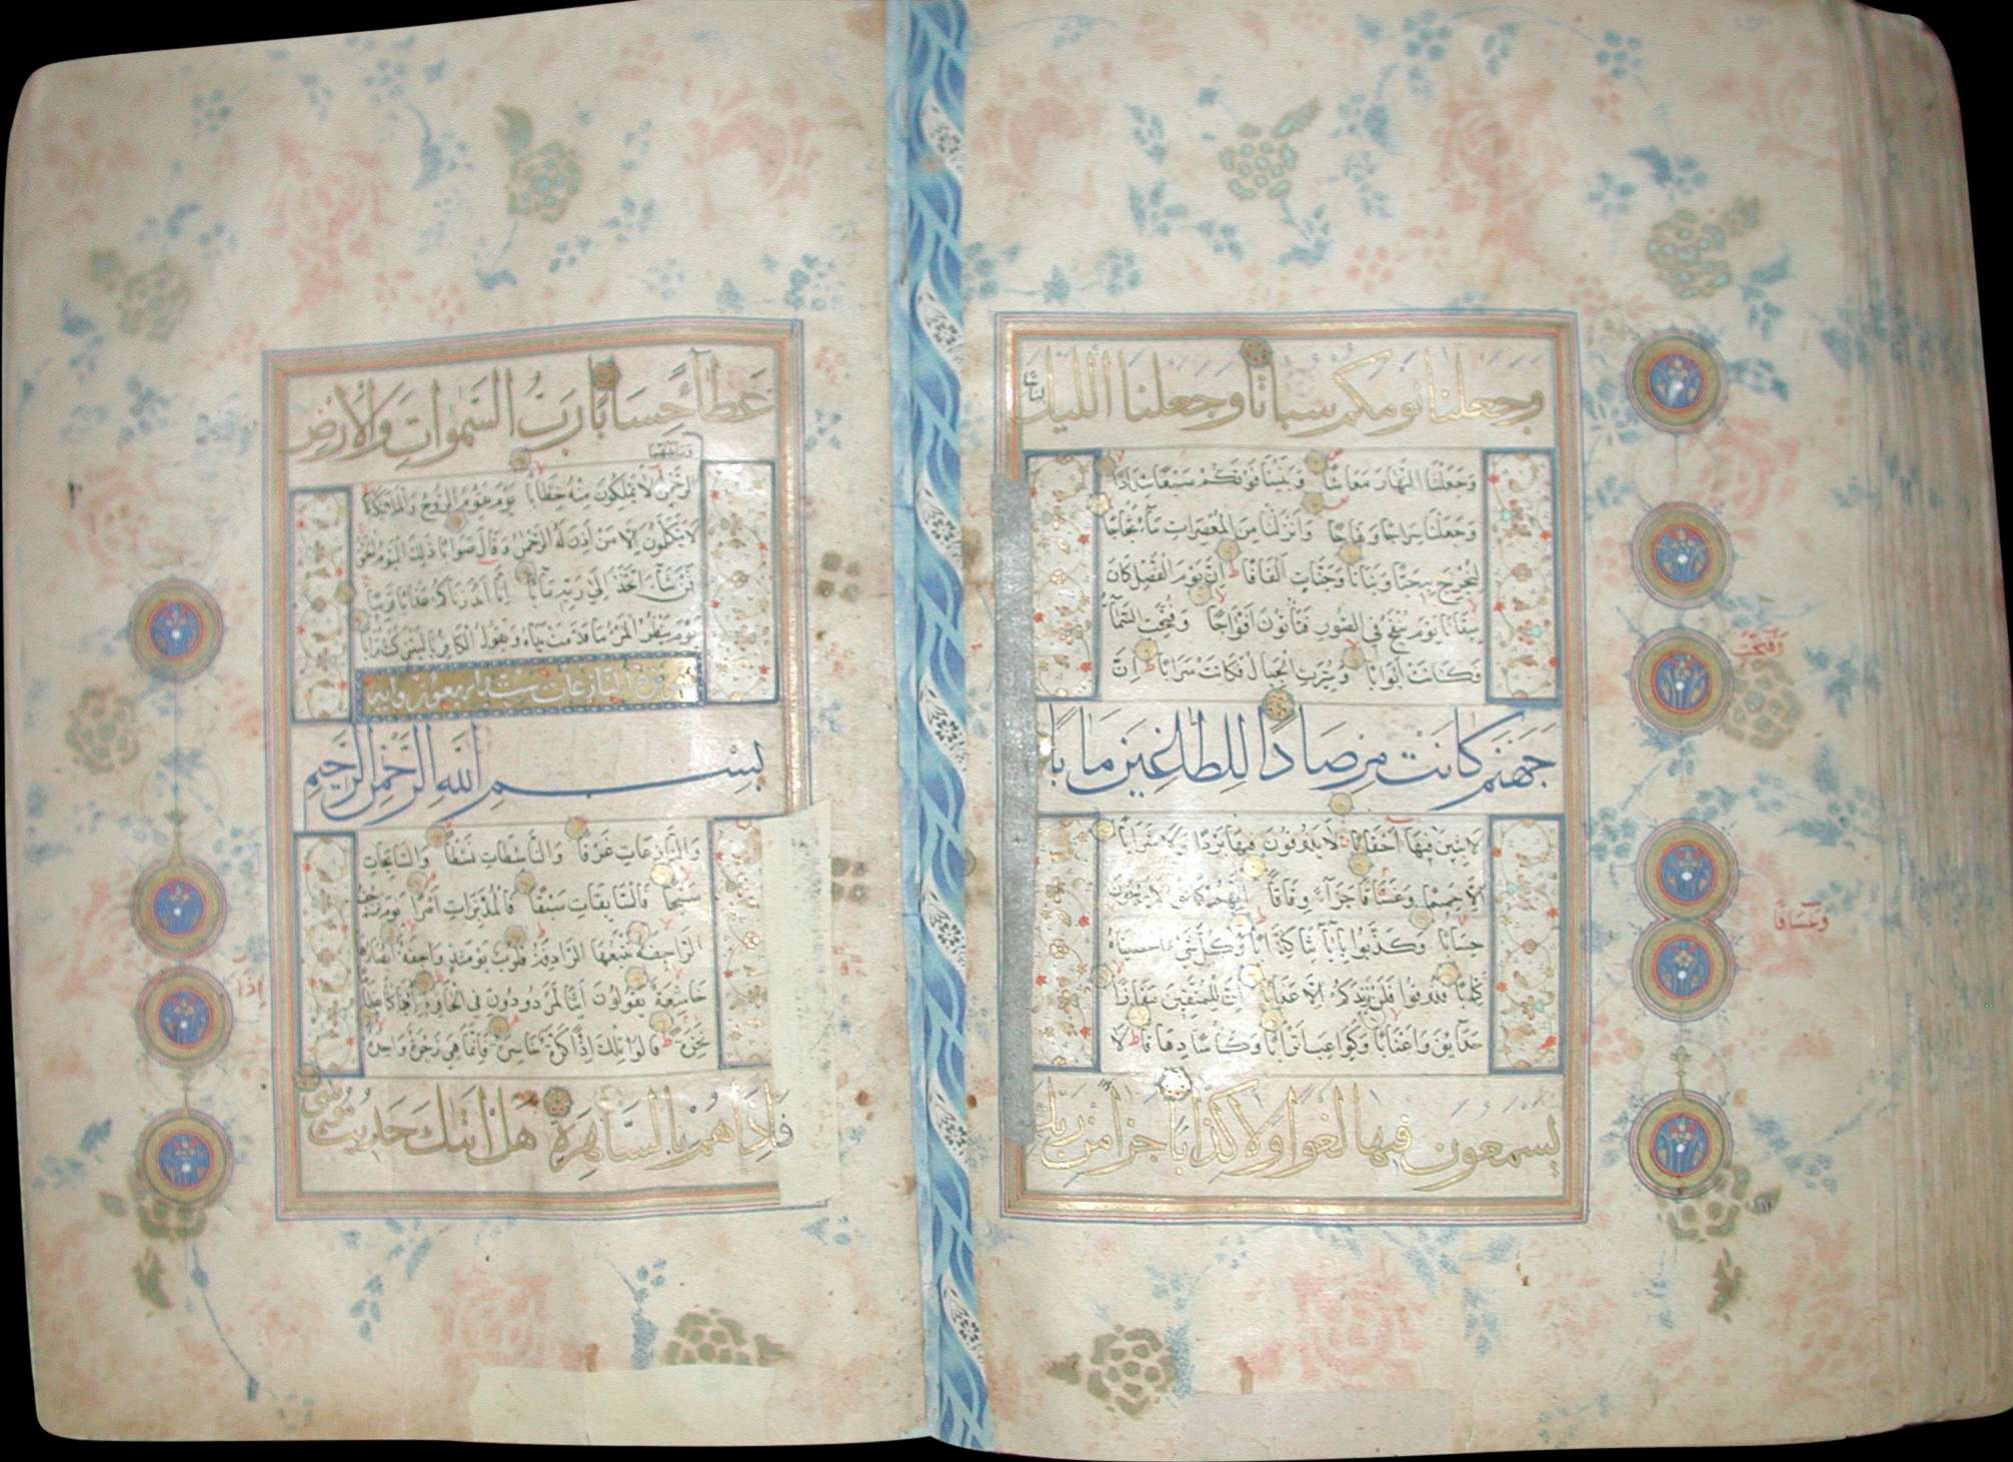 وَجَعَلْنَا نَوْمَكُمْ سُبَاتًا وَجَعَلْنَا اللَّيْلَ لِبَاسًا
وَجَعَلْنَا النَّهَارَ مَعَاشًا وَبَنَيْنَا فَوْقَكُمْ سَبْعًا شِدَادًا
وَجَعَلْنَا سِرَاجًا وَهَّاجًا وَأَنْزَلْنَا مِنَ الْمُعْصِرَاتِ مَاءً ثَجَّاجًا
لِنُخْرِجَ بِهِ حَبًّا وَنَبَاتًا وَجَنَّاتٍ أَلْفَافًا إِنَّ يَوْمَ الْفَصْلِ كَانَ
مِيقَاتًا يَوْمَ يُنْفَخُ فِي الصُّورِ فَتَأْتُونَ أَفْوَاجًا وَفُتِحَتِ السَّمَاءُ
فَكَانَتْ أَبْوَابًا وَسُيِّرَتِ الْجِبَالُ فَكَانَتْ سَرَابًا إِنَّ
جَهَنَّمَ كَانَتْ مِرْصَادًا لِلطَّاغِينَ مَآبًا
لَابِثِينَ فِيهَا أَحْقَابًا لَا يَذُوقُونَ فِيهَا بَرْدًا وَلَا شَرَابًا
إِلَّا حَمِيمًا وَغَسَّاقًا جَزَاءً وِفَاقًا إِنَّهُمْ كَانُوا لَا يَرْجُونَ
حِسَابًا وَكَذَّبُوا بِآيَاتِنَا كِذَّابًا وَكُلَّ شَيْءٍ أَحْصَيْنَاهُ
كِتَابًا فَذُوقُوا فَلَنْ نَزِيدَكُمْ إِلَّا عَذَابًا إِنَّ لِلْمُتَّقِينَ مَفَازًا
حَدَائِقَ وَأَعْنَابًا وَكَوَاعِبَ أَتْرَابًا وَكَأْسًا دِهَاقًا لَا
يَسْمَعُونَ فِيهَا لَغْوًا وَلَا كِذَّابًا جَزَاءً مِنْ رَبِّكَ
وَفُتِحَتِ
وَغَسَّاقًا
عَطَاءً حِسَابًا رَبِّ السَّمٰوَاتِ وَالْأَرْضِ
وَمَا بَيْنَهُمَا
الرَّحْمٰنِ لَا يَمْلِكُونَ مِنْهُ خِطَابًا يَوْمَ يَقُومُ الرُّوحُ وَالْمَلَائِكَةُ
لَا يَتَكَلَّمُونَ إِلَّا مَنْ أَذِنَ لَهُ الرَّحْمٰنُ وَقَالَ صَوَابًا ذٰلِكَ الْيَوْمُ الْحَقُّ
فَمَنْ شَاءَ اتَّخَذَ إِلٰى رَبِّهِ مَآبًا إِنَّا أَنْذَرْنَاكُمْ عَذَابًا قَرِيبًا
يَوْمَ يَنْظُرُ الْمَرْءُ مَا قَدَّمَتْ يَدَاهُ وَيَقُولُ الْكَافِرُ يَا لَيْتَنِي كُنْتُ تُرَابًا
سورة النازعات ست واربعون اية
بِسْمِ اللّٰهِ الرَّحْمٰنِ الرَّحِيمِ
وَالنَّازِعَاتِ غَرْقًا وَالنَّاشِطَاتِ نَشْطًا وَالسَّابِحَاتِ
سَبْحًا فَالسَّابِقَاتِ سَبْقًا فَالْمُدَبِّرَاتِ أَمْرًا يَوْمَ تَرْجُفُ
الرَّاجِفَةُ تَتْبَعُهَا الرَّادِفَةُ قُلُوبٌ يَوْمَئِذٍ وَاجِفَةٌ أَبْصَارُهَا
خَاشِعَةٌ يَقُولُونَ أَئِنَّا لَمَرْدُودُونَ فِي الْحَافِرَةِ أَإِذَا كُنَّا عِظَامًا
نَخِرَةً قَالُوا تِلْكَ إِذًا كَرَّةٌ خَاسِرَةٌ فَإِنَّمَا هِيَ زَجْرَةٌ وَاحِدَةٌ
فَإِذَا هُمْ بِالسَّاهِرَةِ هَلْ أَتٰىكَ حَدِيثُ مُوسٰى
إِذَا